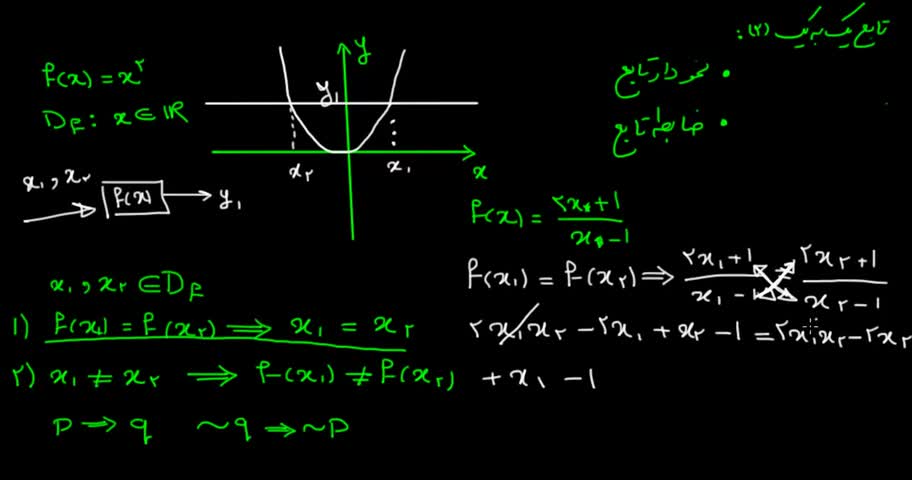 تابع یک به یک (۲):
• نمودار تابع
• ضابطه تابع
f(x) = x^۲
D_f : x ∈ ℝ
y
y₁
x_۲ x₁ x
x₁ , x_۲ f(x) y₁
f(x) = (۲x+1)/(x-1)
f(x₁) = f(x_۲) ⇒ (۲x₁+1)/(x₁-1) = (۲x_۲+1)/(x_۲-1)
۲x₁x_۲ - ۲x₁ + x_۲ - 1 = ۲x₁x_۲ - ۲x_۲
+ x₁ - 1
x₁ , x_۲ ∈ D_f
1) f(x₁) = f(x_۲) ⇒ x₁ = x_۲
۲) x₁ ≠ x_۲ ⇒ f(x₁) ≠ f(x_۲)
P ⇒ q ~q ⇒ ~P